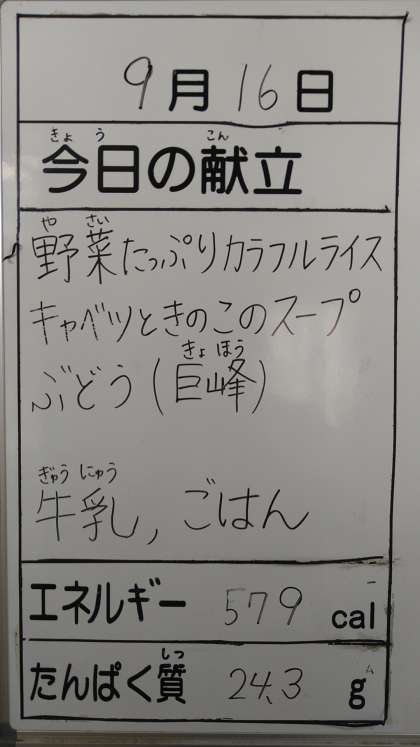 9月16日
きょう こん
今日の献立
や さい
野菜たっぷりカラフルライス
キャベツときのこのスープ
きょ ほう
ぶどう(巨峰)
ぎゅう にゅう
牛乳, ごはん
エネルギー 579 cal
しつ
たんぱく質 24.3 g